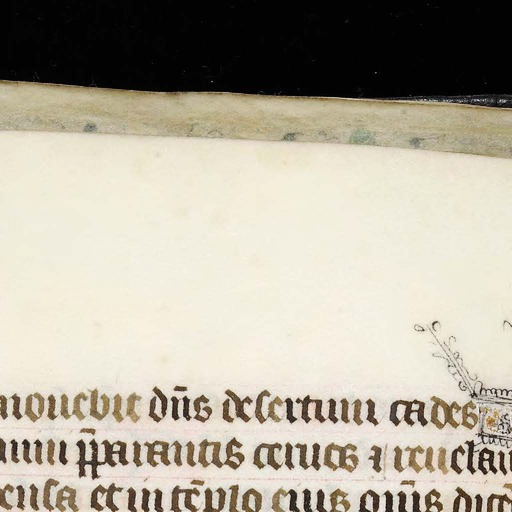 mouebit dn̄s desertum cades
p̄parantis ceruos ⁊ reuelau
densa et in tēplo eius om̄s dicē